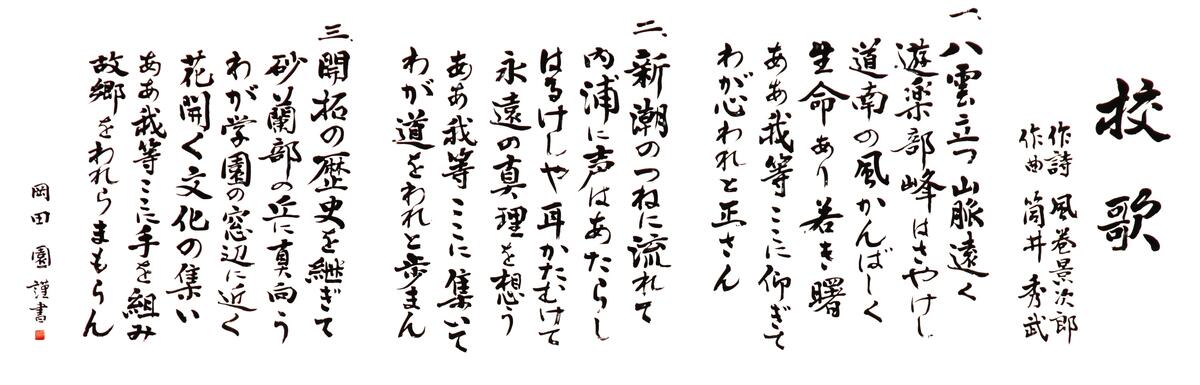 校歌
作詩 風巻景次郎
作曲 筒井秀武
一、八雲立つ山脈遠く
遊楽部峰はさやけし
道南の風かんばしく
生命あり若き曙
ああ我等ここに仰ぎて
わが心われと正さん
二、新潮のつねに流れて
内浦に声はあたらし
はるけしや耳かたむけて
永遠の真理を想う
ああ我等ここに集いて
わが道をわれと歩まん
三、開拓の歴史を継ぎて
砂蘭部の丘に真向う
わが学園の窓辺に近く
花開く文化の集い
ああ我等ここに手を組み
故郷をわれらまもらん
岡田園謹書